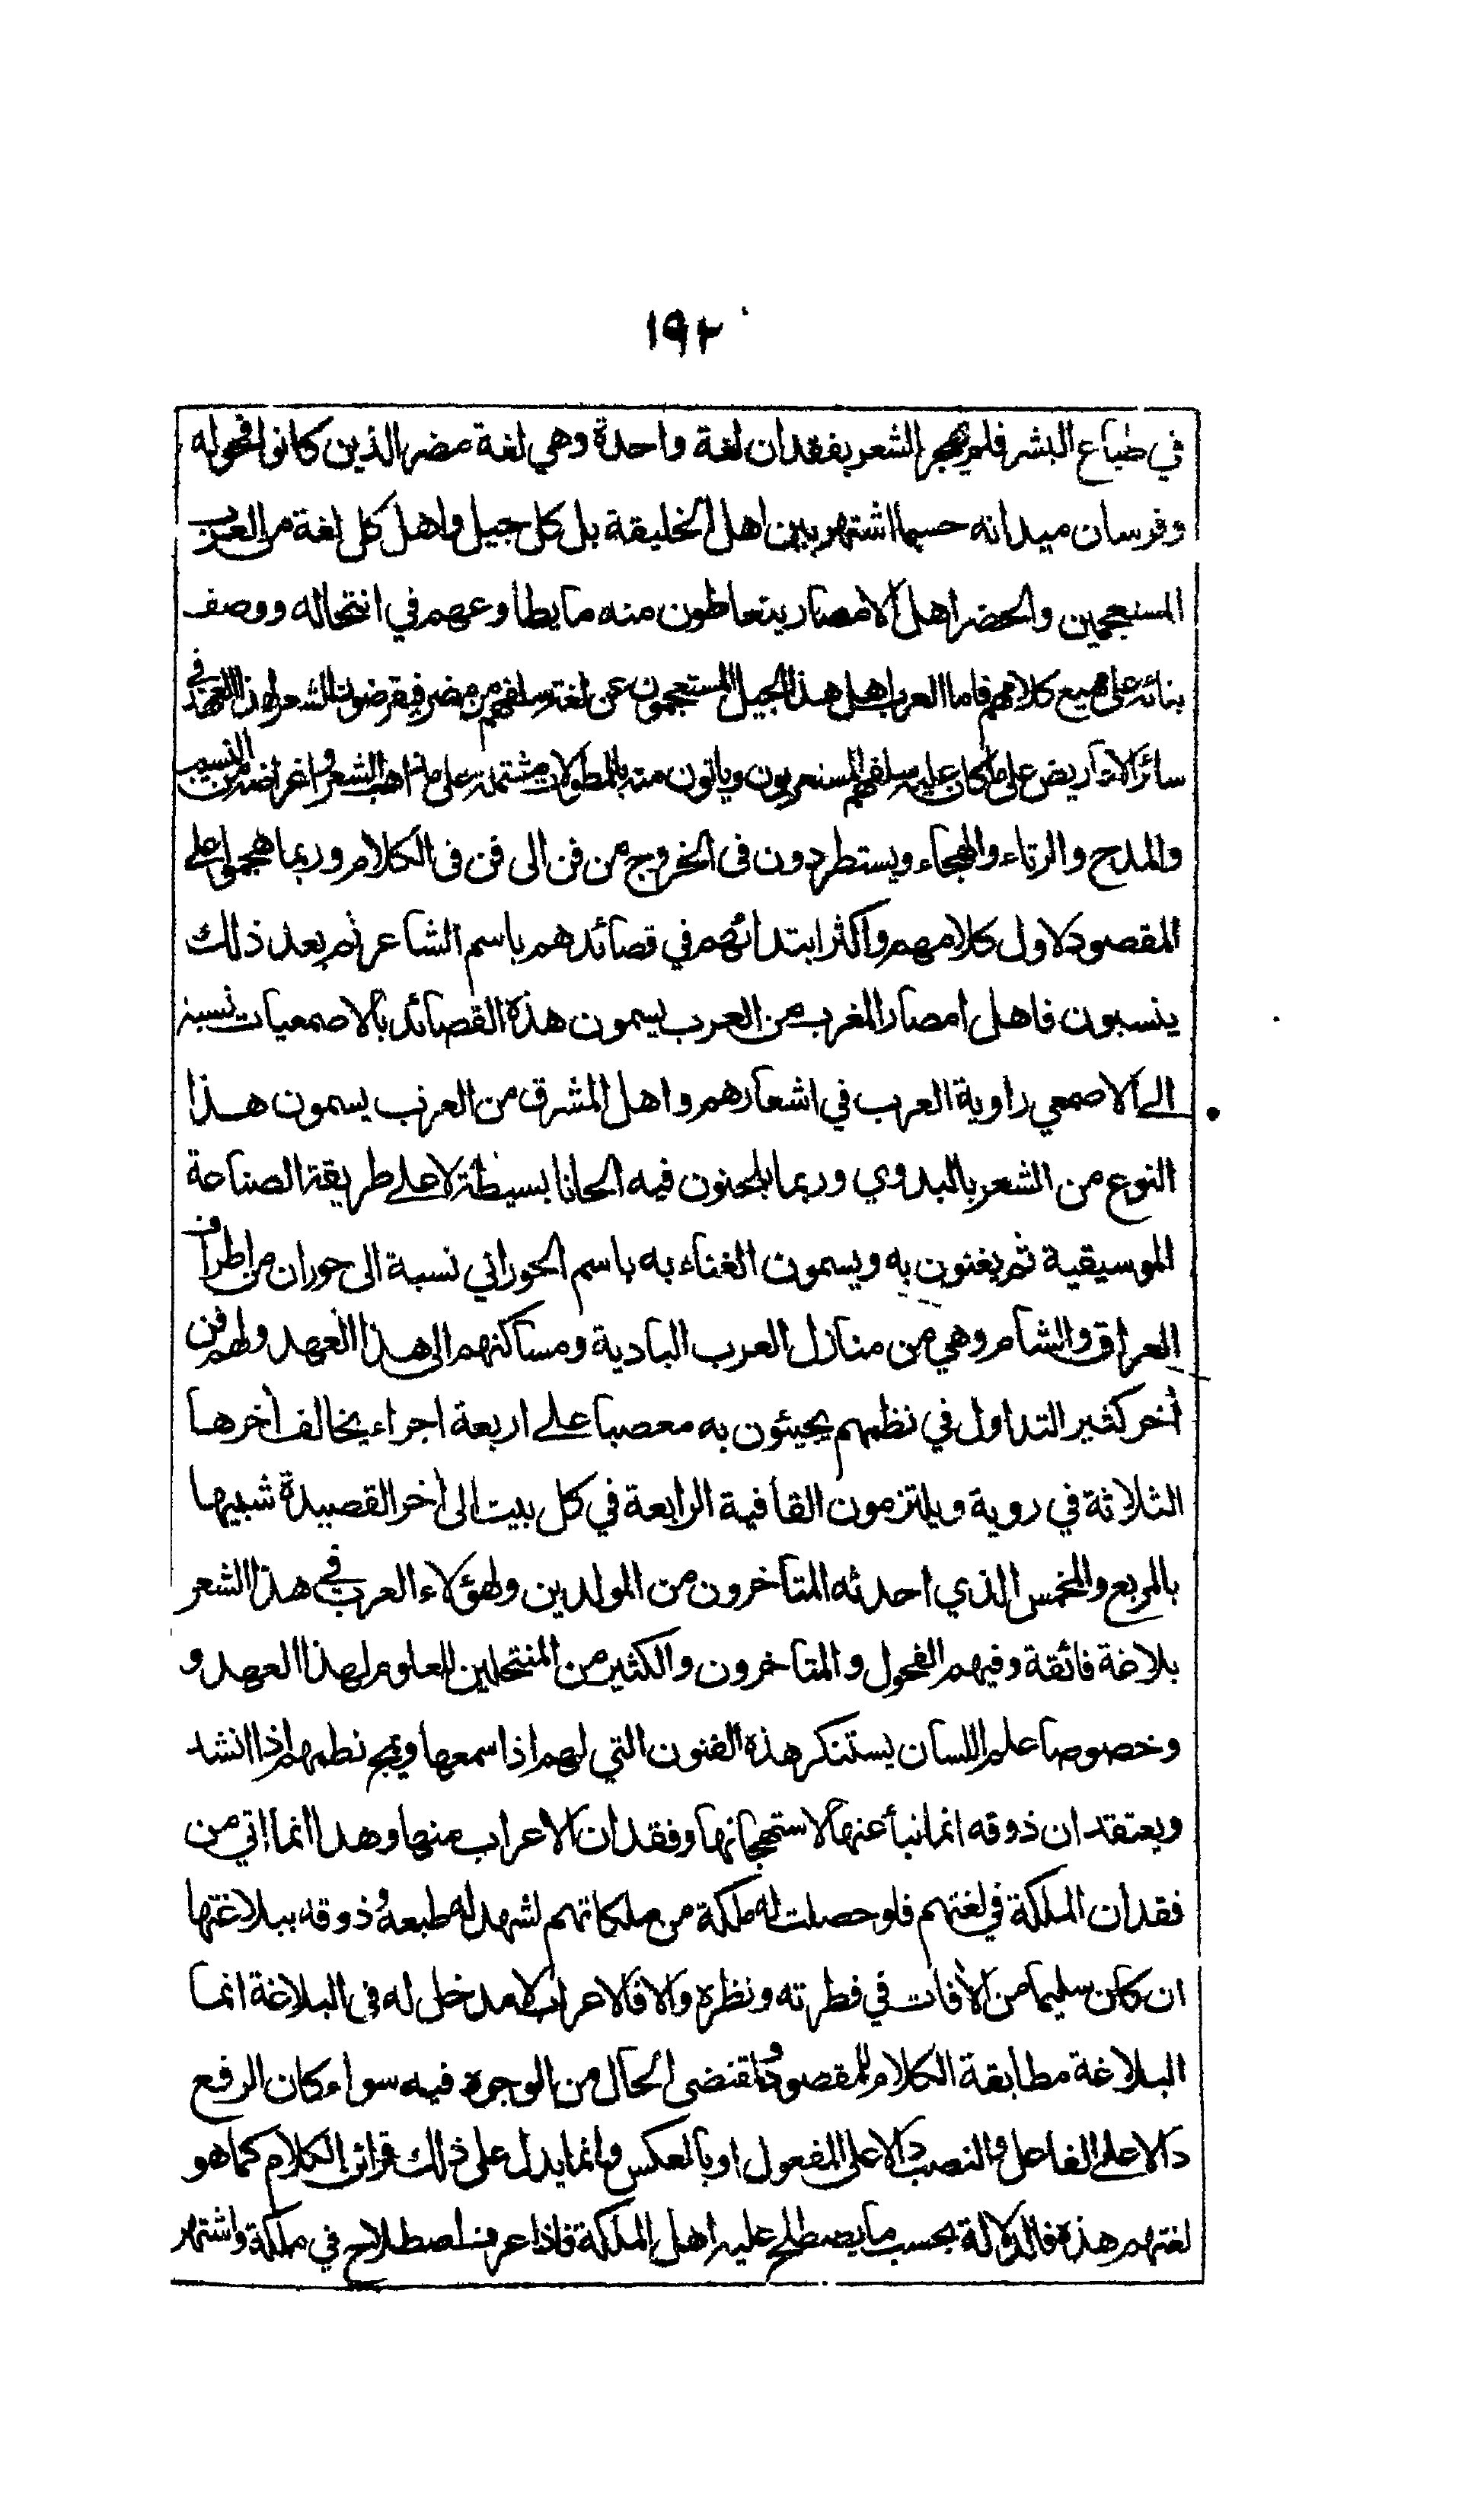 ١٩٢
في طباع البشر فلم يهجر الشعر بفقدان لغة واحدة وهي لغة مضر الذين كانوا فحوله
وفرسان ميدانه حسبما اشتهر بين اهل الخليقة بل كل جيل واهل كل لغة من العرب
المستعجمين والحضر اهل الامصار يتعاطون منه ما يطاوعهم في انتحاله ووصف
بنائه على مهيع كلامهم فاما العرب اهل هذا الجيل المستعجمون عن لغة سلفهم من مضر فيقرضون الشعر لهذا العهد في
سائر الاعاريض على ما كان عليه سلفهم المستعربون وياتون منه بالمطولات مشتملة على مذاهب الشعر واغراضه من النسيب
والمدح والرثاء والهجاء ويستطردون فى الخروج من فن الى فن فى الكلام وربما هجموا على
المقصود لاول كلامهم واكثر ابتدائهم في قصائدهم باسم الشاعر ثم بعد ذلك
ينسبون فاهل امصار المغرب من العرب يسمون هذه القصائد بالاصمعيات نسبة
الى الاصمعي راوية العرب في اشعارهم واهل المشرق من العرب يسمون هذا
النوع من الشعر بالبدوي وربما يلحنون فيه الحانا بسيطة لا على طريقة الصناعة
الموسيقية ثم يغنون به ويسمون الغناء به باسم الحوراني نسبة الى حوران من اطراف
العراق والشام وهي من منازل العرب البادية ومساكنهم الى هذا العهد ولهم فن
أخر كثير التداول في نظمهم يجيئون به معصبا على اربعة اجزاء يخالف أخرها
الثلاثة في روية ويلتزمون القافية الرابعة في كل بيت الى أخر القصيدة شبيها
بالمربع والمخمس الذي احدثه المتأخرون من المولدين ولهؤلاء العرب في هذا الشعر
بلاغة فائقة وفيهم الفحول والمتاخرون والكثير من المنتحلين للعلوم لهذا العهد و
وخصوصا علم اللسان يستنكر هذه الفنون التي لهم اذا سمعها ويمج نظمهم اذا انشد
ويعتقد ان ذوقه انما نبأ عنها لاستهجانها وفقدان الاعراب منها وهذا انما اتي من
فقدان الملكة في لغتهم فلو حصلت له ملكة من ملكاتهم لشهد له طبعه وذوقه ببلاغتها
ان كان سليما من الأفات في فطرته ونظره والا فالاعراب لا مدخل له فى البلاغة انما
البلاغة مطابقة الكلام للمقصود ولمقتضى الحال من الوجوه فيه سواء كان الرفع
دالا على الفاعل والنصب دالا على المفعول او بالعكس وانما يدل على ذلك قرائن الكلام كما هو
لغتهم هذه فالدلالة بحسب ما يصطلح عليه اهل الملكة فاذا عرف اصطلاح في ملكة واشتهر